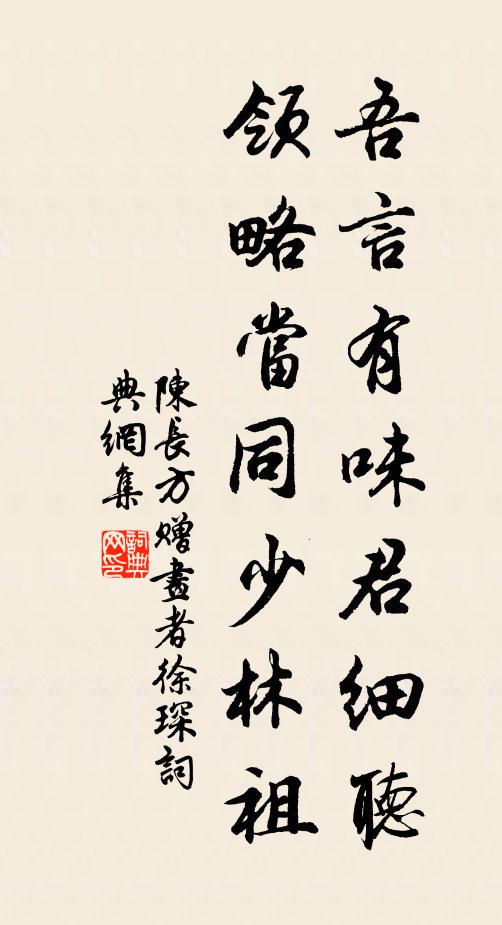 吾言有味君细聽
領略當同少林祖
陳長方赠畫者徐琛詞
典網集
詞典网印